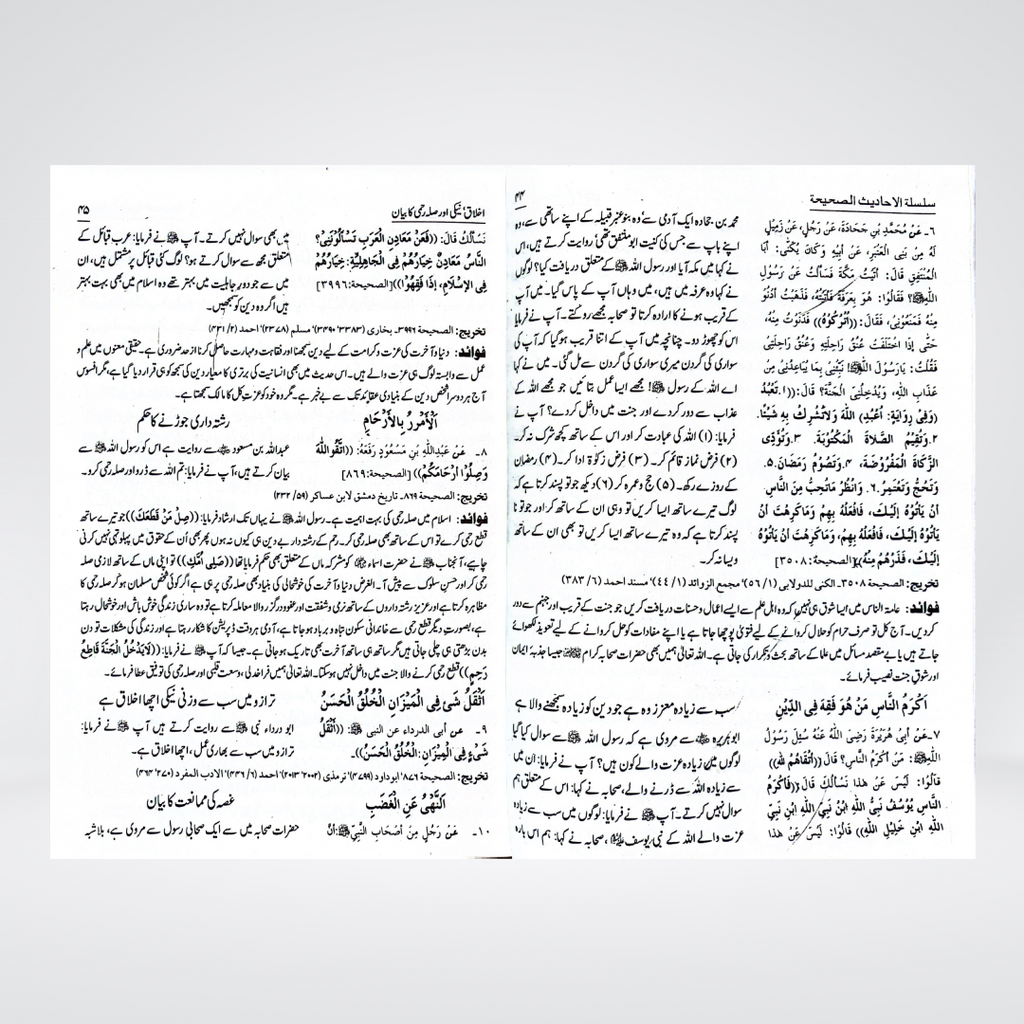 سلسلة الاحاديث الصحيحة
۴۴
٦۔ عَنْ مُحَمَّدِ بْنِ جُحَادَةَ، عَنْ رَجُلٍ، عَنْ زَمِيْلٍ
لَهُ مِنْ بَنِى الْعَنْبَرِ، عَنْ أَبِيْهِ وَكَانَ يُكَنَّى: أَبَا
الْمُنْتَفِقِ قَالَ: أَتَيْتُ مَكَّةَ فَسَأَلْتُ عَنْ رَسُوْلِ
اللهِ ﷺ؟ فَقَالُوْا: هُوَ بِعَرَفَةَ فَأَتَيْتُهُ، فَذَهَبْتُ أَدْنُوْ
مِنْهُ فَمَنَعُوْنِى، فَقَالَ: ((أُتْرُكُوْهُ)) فَدَنَوْتُ مِنْهُ،
حَتَّى إِذَا اخْتَلَفَتْ عُنُقُ رَاحِلَتِهِ وَعُنُقُ رَاحِلَتِىْ
فَقُلْتُ: يَارَسُوْلَ اللهِ ﷺ! نَبِّئْنِى بِمَا يُبَاعِدُنِىْ مِنْ
عَذَابِ اللهِ، وَيُدْخِلُنِىْ الْجَنَّةَ؟ قَالَ: ((١۔تَعْبُدُ
(وَفِىْ رِوَايَةٍ: أُعْبُدِ) اللهَ وَلَاتُشْرِكْ بِهِ شَيْئًا.
٢۔وَتُقِيْمُ الصَّلَاةَ الْمَكْتُوْبَةَ. ٣۔وَتُؤَدِّى
الزَّكَاةَ الْمَفْرُوْضَةَ، ٤۔وَتَصُوْمُ رَمَضَانَ. ٥۔
وَتَحُجُّ وَتَعْتَمِرُ. ٦۔ وَانْظُرْ مَاتُحِبُّ مِنَ النَّاسِ
أَنْ يَأْتُوْهُ إِلَيْكَ، فَافْعَلْهُ بِهِمْ، وَمَاكَرِهْتَ أَنْ
يَأْتُوْهُ إِلَيْكَ، فَافْعَلْهُ بِهِمْ، وَمَاكَرِهْتَ أَنْ يَأْتُوْهُ
إِلَيْكَ، فَذَرْهُمْ مِنْهُ)) [الصحيحة: ۳۵۰۸]
محمد بن جحادہ ایک آدمی سے وہ بنو عنبر قبیلہ کے اپنے ساتھی سے، وہ
اپنے باپ سے جس کی کنیت ابو متنفق تھی، روایت کرتے ہیں، اس
نے کہا میں مکہ آیا اور رسول اللہ ﷺ کے متعلق دریافت کیا؟ لوگوں
نے کہا وہ عرفہ میں ہیں، میں وہاں آپ کے پاس گیا۔ میں آپ
کے قریب ہونے کا ارادہ کرتا تو صحابہ مجھے روکتے۔ آپ نے فرمایا
اس کو چھوڑ دو۔ چنانچہ میں آپ کے اتنا قریب ہو گیا کہ آپ کی
سواری کی گردن میری سواری کی گردن سے مل گئی۔ میں نے کہا
اے اللہ کے رسول ﷺ! مجھے ایسا عمل بتائیں جو مجھے اللہ کے
عذاب سے دور کر دے اور جنت میں داخل کر دے؟ آپ نے
فرمایا: (۱) اللہ کی عبادت کر اور اس کے ساتھ کچھ شرک نہ کر۔
(۲) فرض نماز قائم کر۔ (۳) فرض زکوٰۃ ادا کر۔ (۴) رمضان
کے روزے رکھ۔ (۵) حج و عمرہ کر (۶) دیکھ جو تو پسند کرتا ہے کہ
لوگ تیرے ساتھ ایسا کریں تو وہی ان کے ساتھ کر اور جو تو نا
پسند کرتا ہے کہ وہ تیرے ساتھ ایسا کریں تو بھی ان کے ساتھ
ویسا نہ کر۔
تخریج: الصحيحة ۳۵۰۸۔ الكنى للدولابى (۱/ ۵۶)' مجمع الزوائد (۱/ ۴۴)' مسند احمد (۶/ ۳۸۳)
فوائد: عامۃ الناس میں ایسا شوق ہی نہیں کہ وہ اہل علم سے ایسے اعمال و حسنات دریافت کریں جو جنت کے قریب اور جہنم سے دور
کر دیں۔ آج کل تو صرف حرام کو حلال کروانے کے لیے فتویٰ پوچھا جاتا ہے یا اپنے مفادات کو حل کروانے کے لیے تعویذ لکھوائے
جاتے ہیں یا بے مقصد مسائل میں علما کے ساتھ بحث و تکرار کی جاتی ہے۔ اللہ تعالیٰ ہمیں بھی حضرات صحابہ کرام جیسا جذبۂ ایمان
اور شوقِ جنت نصیب فرمائے۔
اَكْرَمُ النَّاسِ مَنْ هُوَ فَقِهَ فِى الدِّيْنِ
سب سے زیادہ معزز وہ ہے جو دین کو زیادہ سمجھنے والا ہے
۷۔عَنْ أَبِىْ هُرَيْرَةَ رَضِىَ اللّٰهُ عَنْهُ سُئِلَ رَسُوْلُ
اللهِ ﷺ: مَنْ أَكْرَمُ النَّاسِ؟ قَالَ: ((أَتْقَاهُمْ لِلّٰهِ))
قَالُوْا: لَيْسَ عَنْ هٰذَا نَسْأَلُكَ قَالَ ((فَأَكْرَمُ
النَّاسِ يُوْسُفُ نَبِىُّ اللهِ ابْنُ نَبِىِّ اللهِ ابْنِ نَبِىِّ
اللهِ ابْنِ خَلِيْلِ اللهِ)) قَالُوْا: لَيْسَ عَنْ هٰذَا
ابو ہریرہ سے مروی ہے کہ رسول اللہ ﷺ سے سوال کیا گیا
لوگوں میں زیادہ عزت والے کون ہیں؟ آپ نے فرمایا: ان میں
سے زیادہ اللہ سے ڈرنے والے، صحابہ نے کہا: اس کے متعلق ہم
سوال نہیں کرتے۔ آپ ﷺ نے فرمایا: لوگوں میں سب سے زیادہ
عزت والے اللہ کے نبی یوسف ، صحابہ نے کہا: ہم اس بارہ
اخلاق' نیکی اور صلہ رحمی کا بیان
۴۵
نَسْأَلُكَ قَالَ: ((فَعَنْ مَعَادِنِ الْعَرَبِ تَسْأَلُوْنِىْ؟
النَّاسُ مَعَادِنُ خِيَارُهُمْ فِى الْجَاهِلِيَّةِ: خِيَارُهُمْ
فِى الْإِسْلَامِ، إِذَا فَقِهُوْا))[الصحيحة: ۳۹۹۶]
میں بھی سوال نہیں کرتے۔ آپ ﷺ نے فرمایا: عرب قبائل کے
متعلق مجھ سے سوال کرتے ہو؟ لوگ کئی قبائل پر مشتمل ہیں، ان
میں سے جو دورِ جاہلیت میں بہتر تھے وہ اسلام میں بھی بہت بہتر
ہیں اگر وہ دین کو سمجھیں۔
تخریج: الصحيحة ۳۹۹۶۔ بخاری (۳۳۸۳' ۳۴۹۰)' مسلم (۲۳۷۸)' احمد (۲/ ۴۳۱)
فوائد: دنیا و آخرت کی عزت و کرامت کے لیے دین سمجھنا اور فقاہت و مہارت حاصل کرنا ازحد ضروری ہے۔ حقیقی معنوں میں علم و
عمل سے وابستہ لوگ ہی عزت والے ہیں۔ اس حدیث میں بھی انسانیت کی برتری کا معیار دین کی سمجھ کو ہی قرار دیا گیا ہے، مگر افسوس
آج ہر دوسرا شخص دین کے بنیادی عقائد تک سے بے خبر ہے۔ مگر وہ خود کو عزتِ کل کا مالک سمجھتا ہے۔
اَلْأَمْرُ بِالْأَرْحَامِ
رشتہ داری جوڑنے کا حکم
۸۔ عَنْ عَبْدِاللّٰهِ بْنِ مَسْعُوْدٍ رَفَعَهُ: ((اتَّقُوْا اللّٰهَ
وَصِلُوْا أَرْحَامَكُمْ)) [الصحيحة: ۸۶۹]
عبداللہ بن مسعود سے روایت ہے اس کو رسول اللہ ﷺ سے
بیان کرتے ہیں، آپ نے فرمایا: تم اللہ سے ڈرو اور صلہ رحمی کرو۔
تخریج: الصحيحة ۸۶۹۔ تاریخ دمشق لابن عساکر (۵۹/ ۲۳۲)
فوائد: اسلام میں صلہ رحمی کی بہت اہمیت ہے۔ رسول اللہ ﷺ نے یہاں تک ارشاد فرمایا: ((صِلْ مَنْ قَطَعَكَ)) جو تیرے ساتھ
قطع رحمی کرے تو اس کے ساتھ بھی صلہ رحمی کر۔ رحم کے رشتہ دار بے دین ہی کیوں نہ ہوں پھر بھی اُن کے حقوق میں پہلو تہی نہیں کرنی
چاہیے، آنجناب ﷺ نے حضرت اسماء کو مشرکہ ماں کے متعلق بھی حکم فرمایا تھا ((صِلِى أُمَّكِ)) تو اپنی ماں کے ساتھ لازمی صلہ
رحمی کر اور حسنِ سلوک سے پیش آ۔ الغرض دنیا و آخرت کی خوشحالی کی بنیاد بھی صلہ رحمی پر ہی ہے اگر کوئی شخص مسلمان ہو کر صلہ رحمی کا
مظاہرہ کرتا ہے اور عزیز رشتہ داروں کے ساتھ نرمی و شفقت اور عفو و درگزر والا معاملہ کرتا ہے تو وہ ساری زندگی خوش باش اور خوشحال رہتا
ہے، بصورتِ دیگر قطع رحمی سے خاندانی سکون تباہ و برباد ہو جاتا ہے، آدمی ہر وقت ڈپریشن کا شکار رہتا ہے اور زندگی کی مشکلات تو دن
بدن بڑھتی ہی چلی جاتی ہیں مگر ساتھ ہی ساتھ آخرت بھی تاریک ہو جاتی ہے۔ جیسا کہ آپ ﷺ نے فرمایا: ((لَايَدْخُلُ الْجَنَّةَ قَاطِعُ
رَحِمٍ)) قطع رحمی کرنے والا جنت میں داخل نہیں ہو سکتا۔ اللہ تعالیٰ ہمیں فراخدلی، وسعت قلبی اور صلہ رحمی کی توفیق عطا فرمائے۔
اَثْقَلُ شَىْءٍ فِى الْمِيْزَانِ الْخُلُقُ الْحَسَنُ
ترازو میں سب سے وزنی نیکی اچھا اخلاق ہے
۹۔ عن أبى الدرداء عن النبى ﷺ: ((أَثْقَلُ
شَىْءٍ فِى الْمِيْزَانِ: الْخُلُقُ الْحَسَنُ))۔
ابو درداء نبی ﷺ سے روایت کرتے ہیں آپ ﷺ نے فرمایا:
ترازو میں سب سے بھاری عمل، اچھا اخلاق ہے۔
تخریج: الصحيحة ۸۷۶' ابوداود (۴۷۹۹)' ترمذی (۲۰۰۲' ۲۰۱۳)' احمد (۶/ ۴۴۶)' الادب المفرد (۲۷۰' ۴۶۴)
اَلنَّهْىُ عَنِ الْغَضَبِ
غصہ کی ممانعت کا بیان
۱۰۔ عَنْ رَجُلٍ مِنْ أَصْحَابِ النَّبِىِّ ﷺ: أَنَّ
حضرات صحابہ میں سے ایک صحابی رسول سے مروی ہے، بلاشبہ